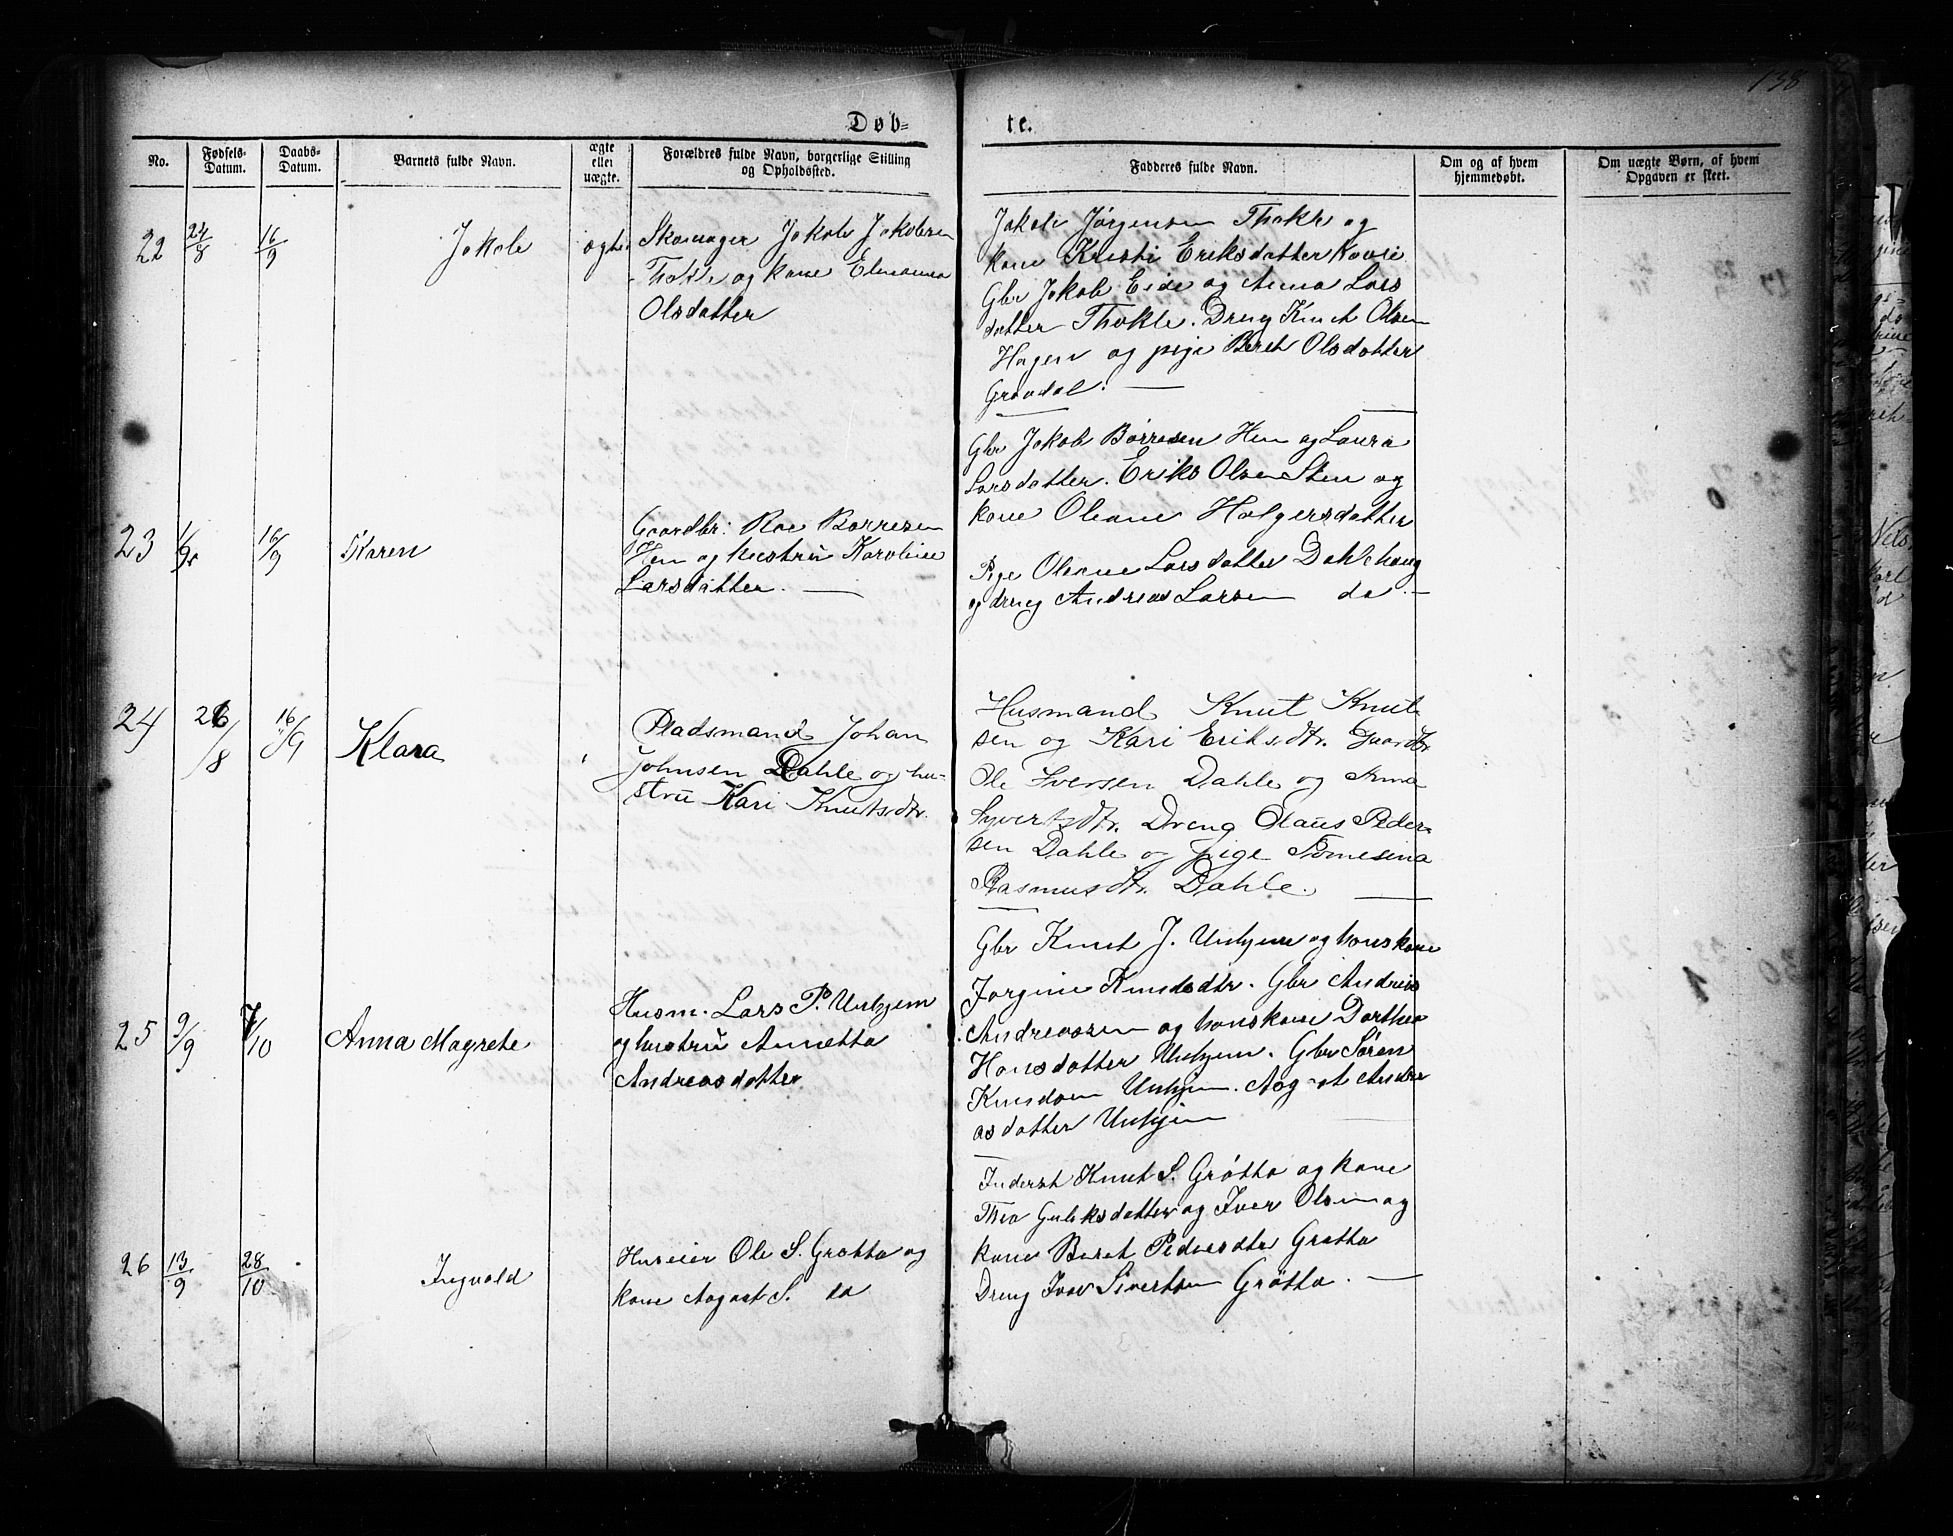 138
Døb-
te.
No.
Fødsels-
Datum.
Daabs-
Datum.
Barnets fulde Navn.
ægte
eller
uægte.
Forældres fulde Navn, borgerlige Stilling
og Opholdssted.
Fadderes fulde Navn.
Om og af hvem
hjemmedøbt.
Om uægte Børn, af hvem
Opgaven er skeet.
22 24/8 16/9 Jakob ægte
Skomager Jakob Jakobsen
Thokle og kone
Olsdatter
Jakob Jørgensen Thokle og
kone Kristi Eriksdatter
Gbr Jakob Eide og Anna Lars
datter Thokle. Dreng Knut Olsen
Hagen og pige Beret Olsdatter
Gravdal.
23 16/9 Karen
Gaardbr: Roe Børresen
Hen og hustrú Karoline
Larsdatter.
Gbr Jakob Børresen Hen og Laura
Larsdatter. Eriks Olsen Sten og
kone Oleane Holgersdatter
Pige Oleane Larsdatter Dahlehaug
og dreng Andreas Larsen do.
24 26/8 16/9 Klara
Pladsmand Johan
Johnsen Dahle og hu-
strú Kari Knutsdtr.
Husmand Knut Knut
sen og Kari Eriksdtr. Gaardbr.
Ole Iversen Dahle og Anna
Syvertsdtr. Dreng Olaús Peder-
sen Dahle og pige Tomesina
Rasmusdtr. Dahle.
25 9/9 7/10 Anna Magrete
Husm. Lars P. Unhjem
og hustrú Annetta
Andreasdatter
Gbr Knut J. Unhjem og hans kone
Jørgine Knudsdtr. Gbr Andreas
Andreassen og hans kone Dorthea
Hansdatter Unhjem. Gbr Søren
Knudsen Unhjem. Andre
asdatter Unhjem
26 13/9 28/10 Ingvald
Huseier Ole S. Grøtta og
kone S. do
Inderst Knut S. Grøtta og kone
Thea og Iver Olsen og
kone Beret Pedersdtr Grøtta
Dreng Iver Sivertsen Grøtta.